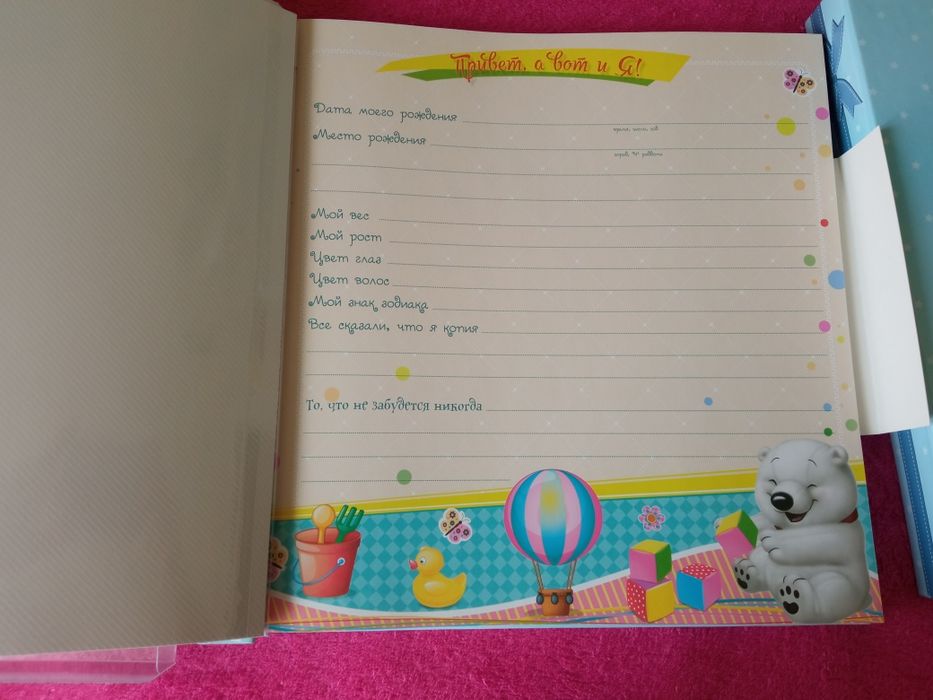 Привет, а вот и Я!
Дата моего рождения
Место рождения
Мой вес
Мой рост
Цвет глаз
Цвет волос
Мой знак зодиака
Все сказали, что я копия
То, что не забудется никогда